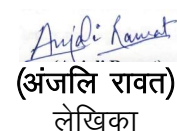 Anjali Rawat
(अंजलि रावत)
लेखिका